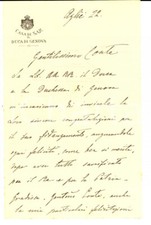 CASA DI S.A.R.
IL
DUCA DI GENOVA
Luglio 22.
Gentilissimo Conte
Le LL. AA. RR. il Duca
e la Duchessa di Genova
mi incaricano di inviarle le
loro sincere congratulazioni per
il suo fidanzamento, augurandole
ogni felicità, come ben si merita
dopo aver tutto sacrificato
per il Re e per la Patria.
Gradisca, Gentile Conte, anche
le mie particolari felicitazioni